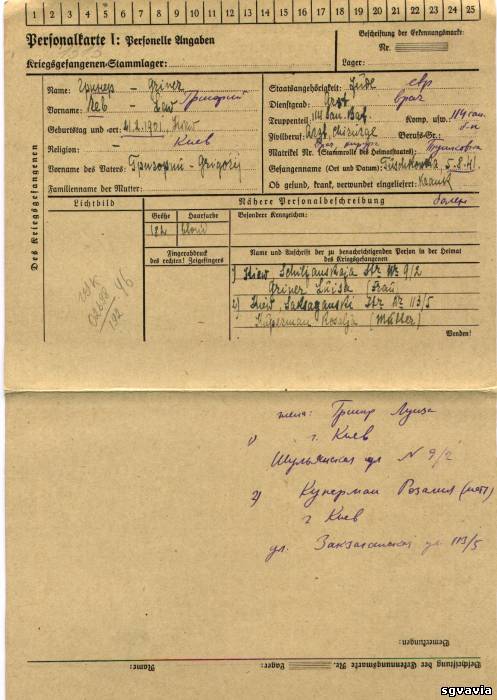 1 2 3 4 5 6 7 8 9 10 11 12 13 14 15 16 17 18 19 20 21 22 23 24 25
Personalkarte I: Personelle Angaben
Kriegsgefangenen-Stammlager:
Beschriftung der Erkennungsmarke:
Nr.
Lager:
Des Kriegsgefangenen
Name: Гринер - Griner
Vorname: Лев - Lew Григорий
Geburtstag und -ort: 1901, Kiew
Киев
Religion: -
Vorname des Vaters: Григорий - Grigorij
Familienname der Mutter:
Staatsangehörigkeit: Jude евр
Dienstgrad: Arzt врач
Truppenteil: 114 San. Bat. Komp. usw.: 114 сан.
б-н
Zivilberuf: Arzt, Chirurge Berufs-Gr.:
Matrikel Nr. (Stammrolle des Heimatstaates):
Gefangennahme (Ort und Datum): 5.8.41
Ob gesund, krank, verwundet eingeliefert: Krank
болен
Lichtbild
Nähere Personalbeschreibung
Größe Haarfarbe Besondere Kennzeichen:
182 blond
Fingerabdruck
des rechten! Zeigefingers
Name und Anschrift der zu benachrichtigenden Person in der Heimat
des Kriegsgefangenen
1) Kiew Schuljanskaja Str Nr 9/2
Griner Luisa (Frau
2) Kiew Saksaganski Str Nr 113/5
Kuperman Rosalja (Mutter)
Wenden!
192
46
жена: Гринер Луиза
1) г. Киев
Шульянская ул N 9/2
2) Куперман Розалия (мать)
г Киев
ул. Закзаганская ул 113/5
Bemerkungen:
Beschriftung der Erkennungsmarke Nr.
Lager:
Name:
sgvavia